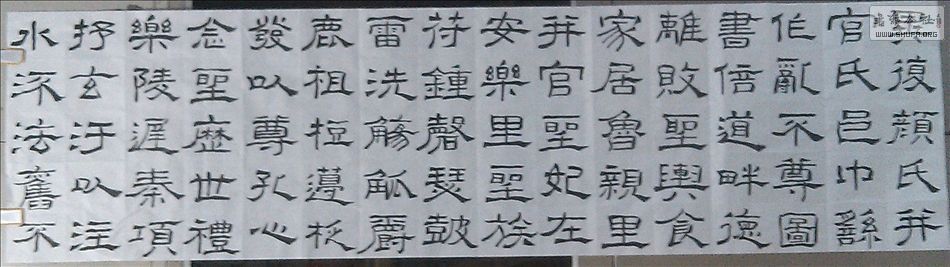 異復顏氏并
官氏邑中繇
作亂不尊圖
書倍道畔德
離敗聖輿食
家居魯親里
并官聖妃在
安樂里聖族
苻鍾磬瑟鼓
雷洗觴觚爵
鹿柤梪籩柉
發以尊孔心
念聖歷世禮
樂陵遲秦項
抒玄汙以注
水流法舊不
WWW.SHUFA.ORG